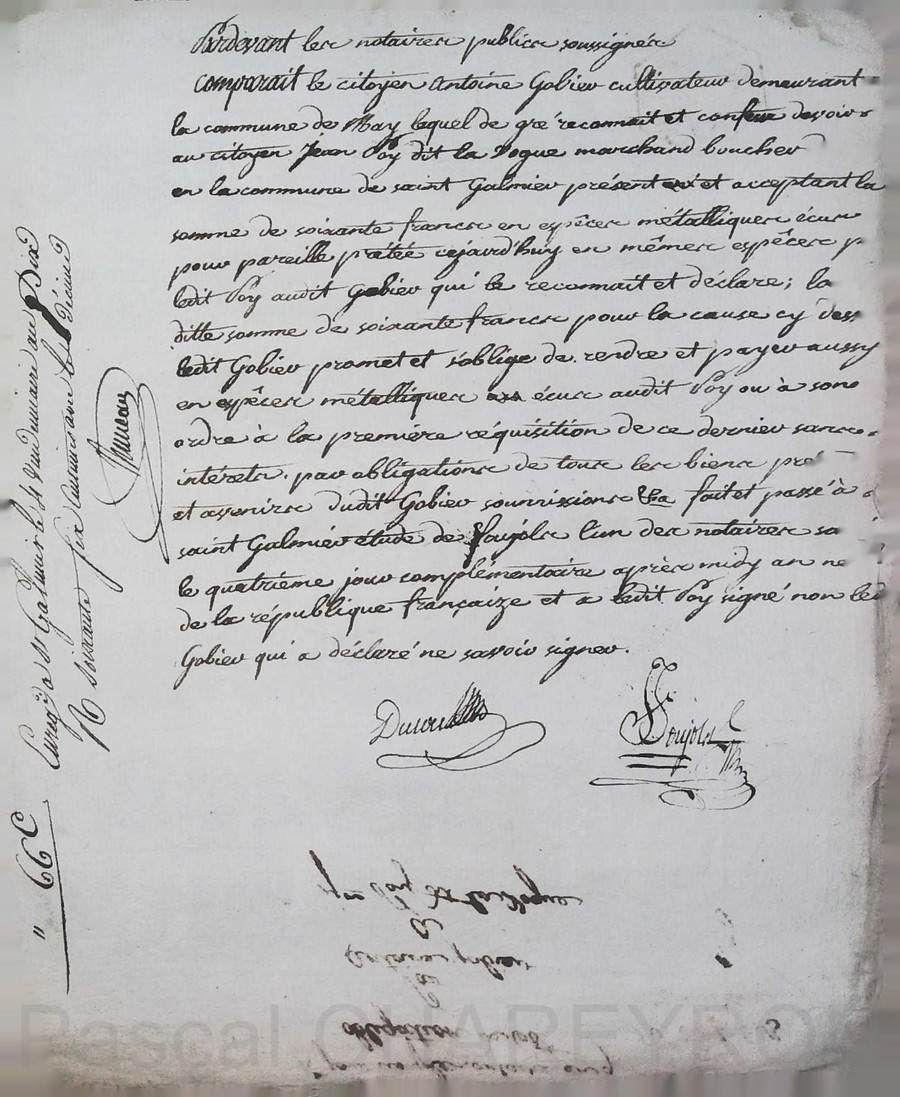 Pardevant les notaires publics soussignés
comparait le citoyen Antoine Gobier cultivateur demeurant
la commune de May lequel de gré reconnait et confesse devoir
au citoyen Jean Poy dit la Vogue marchand boucher
en la commune de saint Galmier présent et acceptant la
somme de soixante francs en espèces métalliques écus
pour pareille prêtée cejourd'huy en mêmes espèces p
ledit Poy audit Gobier qui le reconnait et déclare; la
ditte somme de soixante francs pour la cause cy dess
ledit Gobier promet et s'oblige de rendre et payer aussy
en espèces métalliques écus audit Poy ou à son
ordre à la première réquisition de ce dernier sans
intérets. par obligations de tous les biens pré
et avenirs dudit Gobier soumissions &a fait et passé à
saint Galmier étude de Poujols l'un des notaires so
le quatrième jour complémentaire après midy an ne
de la république françaize et a ledit Poy signé non led
Gobier qui a déclaré ne savoir signer.
Poujols
Enregé a St Galmier le vendémiaire an Dix
R soixante six centimes avec le décime
" 66 C
Poy dit la Vogue
à
antoine gobier
par
obligation
Pascal CHAPEYRO